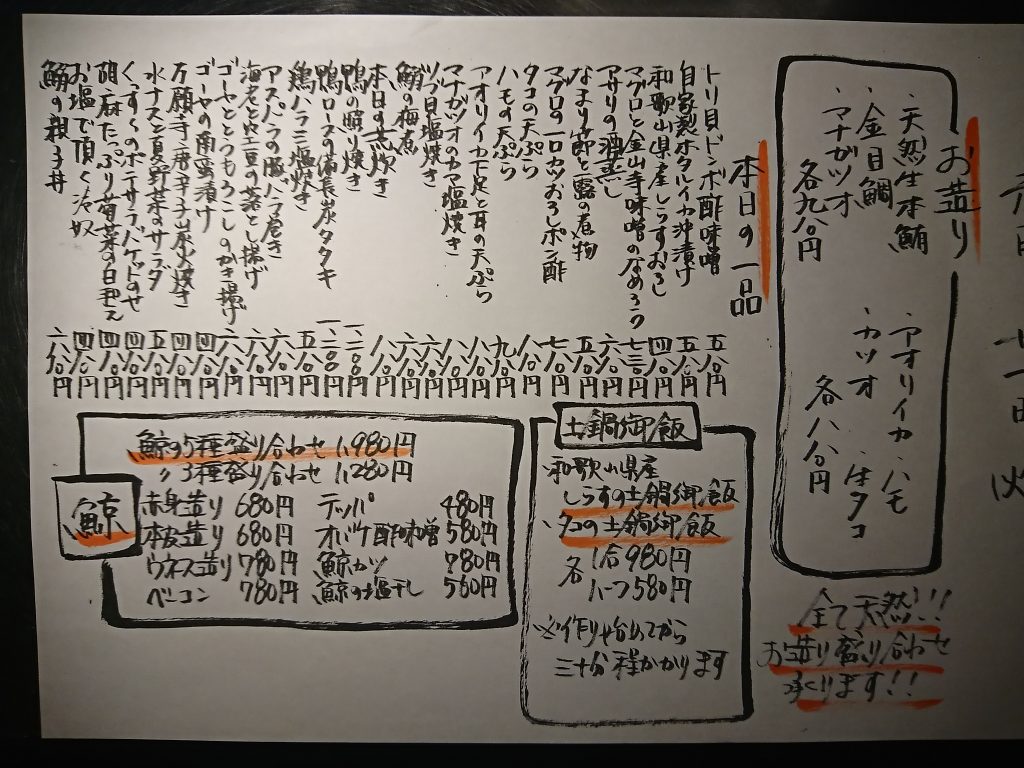 お造り
・天然生本鮪
・金目鯛
・マナガツオ
各九八〇円
・アオリイカ
・ハモ
・カツオ
・生タコ
各八八〇円
全て天然!!
お造り盛り合わせ
承ります!!
本日の一品
トリ貝ドンボ酢味噌 五八〇円
自家製ホタルイカ沖漬け 五八〇円
和歌山県産しらすおろし 四八〇円
マグロと金山寺味噌のなめろう 七三〇円
アサリの酒蒸し 六八〇円
なまり節と蕗の煮物 五八〇円
マグロの一口カツおろしポン酢 七八〇円
タコの天ぷら 八八〇円
ハモの天ぷら 九八〇円
アオリイカ下足と耳の天ぷら 八八〇円
マナガツオのカマ塩焼き 八八〇円
ツブ貝塩焼き 六八〇円
鰯の梅煮 六八〇円
本日の煮炊 八八〇円
鴨の照り焼き 一、二八〇円
鴨ロースの備長炭タタキ 一、二八〇円
鶏ハラミ塩焼き 五八〇円
アスパラの豚バラ巻き 六八〇円
海老と空豆の葵とし揚げ 六八〇円
ゴーヤととうもろこしのかき揚げ 六八〇円
ゴーヤの南蛮漬け 四八〇円
万願寺唐辛子炭火焼き 四八〇円
水ナスと夏野菜のサラダ 五八〇円
くっすんのポテサラバケットのせ 四八〇円
胡麻たっぷり菊菜の白和え 四八〇円
お塩で頂く冷奴 四八〇円
鰯の親子丼 六八〇円
土鍋御飯
・和歌山県産
しらすの土鍋御飯
・タコの土鍋御飯
各
1合980円
ハーフ580円
※作り始めてから
三十分程かかります
鯨
鯨の5種盛り合わせ 1,980円
〃3種盛り合わせ 1,280円
赤身造り 680円
本皮造り 680円
ウネス造り 780円
ベーコン 780円
テッパ 480円
オバケ酢味噌 580円
鯨カツ 780円
鯨の塩干し 560円